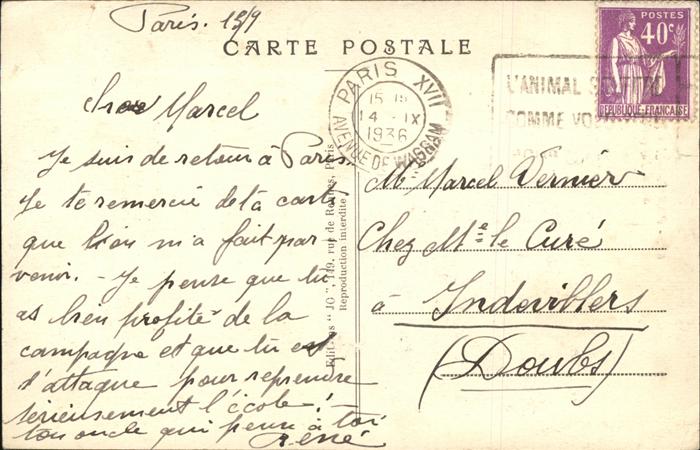 Paris. 15/9
CARTE POSTALE
POSTES
40c
REPUBLIQUE FRANÇAISE
PARIS XVII
15 15
14 - IX
1936
AVENUE DE WAGRAM
L'ANIMAL
COMME VOUS
cher Marcel
Je suis de retour à Paris.
Je te remercie de ta carte
que l'on m'a fait par
venir. - Je pense que tu
as bien profité de la
campagne et que tu es
d'attaque pour reprendre
sérieusement l'école! -
ton oncle qui pense à toi
René
Editions "JO", 149, rue de Rennes, Paris
Reproduction interdite
Mr Marcel Vernier
Chez Mr le Curé
à Indevillers
(Doubs)